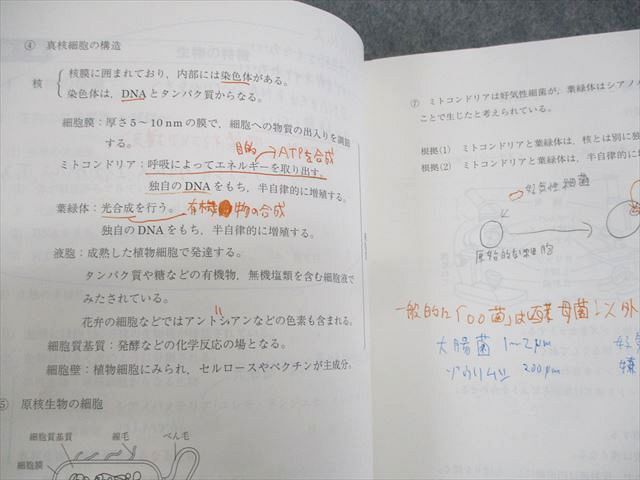 ④ 真核細胞の構造
核
核膜に囲まれており、内部には染色体がある。
染色体は、DNAとタンパク質からなる。
細胞膜：厚さ5～10 nmの膜で、細胞への物質の出入りを調節
する。
→ATPを合成
ミトコンドリア：呼吸によってエネルギーを取り出す。
独自のDNAをもち、半自律的に増殖する。
葉緑体：光合成を行う。 有機物の合成
独自のDNAをもち、半自律的に増殖する。
液胞：成熟した植物細胞で発達する。
タンパク質や糖などの有機物、無機塩類を含む細胞液で
みたされている。
花弁の細胞などではアントシアンなどの色素も含まれる。
細胞質基質：発酵などの化学反応の場となる。
細胞壁：植物細胞にみられ、セルロースやペクチンが主成分。
⑤ 原核生物の細胞
細胞質基質
線毛
べん毛
細胞膜
⑦ ミトコンドリアは好気性細菌が、葉緑体はシアノ
ことで生じたと考えられている。
根拠(1) ミトコンドリアと葉緑体は、核とは別に独
根拠(2) ミトコンドリアと葉緑体は、半自律的に増
好気性細菌
原始的な細胞
一般的に「○○菌」は酵母菌以外
大腸菌 1～2μm
ゾウリムシ 200μm
好気
嫌